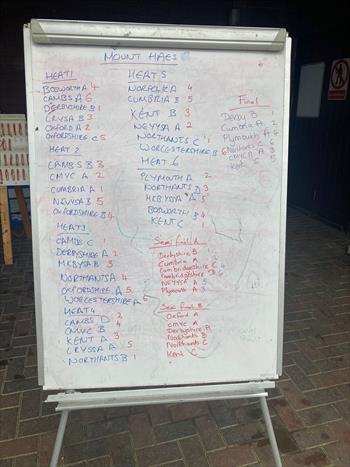 MOUNT HAES
HEAT 1
BOSWORTH A 4
CAMBS A 6
DERBYSHIRE B 1
CRYSA B 3
OXFORD A 2
OXFORDSHIRE C 5
HEAT 2
CAMBS B 3
CMYC A 2
CUMBRIA A 1
NEVYSA B 5
OXFORDSHIRE B 4
HEAT 3
CAMBS C 1
DERBYSHIRE A 2
MKBYSA B 3
NORTHANTS A 4
OXFORDSHIRE A 5
WORCESTERSHIRE A 6
HEAT 4
CAMBS D 2
CMYC B 4
KENT A 3
CRYSSA A 5
NORTHANTS B 1
HEAT 5
NORFOLK A 4
CUMBRIA B 5
KENT B 3
NEYYSA A 2
NORTHANTS C 1
WORCESTERSHIRE B 6
HEAT 6
PLYMOUTH A 2
NORTHANTS D 3
MKBYSA A 5
BOSWORTH B 4
KENT C 1
Semi final A
Derbyshire B 1
Cumbria A 2
Cambridgeshire C 4
Cambridgeshire D 6
NEYYSA A 5
Plymouth A 3
Semi final B
Oxford A
CMYC A
Derbyshire A
Northants B
Northants C
Kent C
Final
Derby B 1
Cumbria A 2
Plymouth A 4
Northants C 6
CMYC A 3
Kent 5